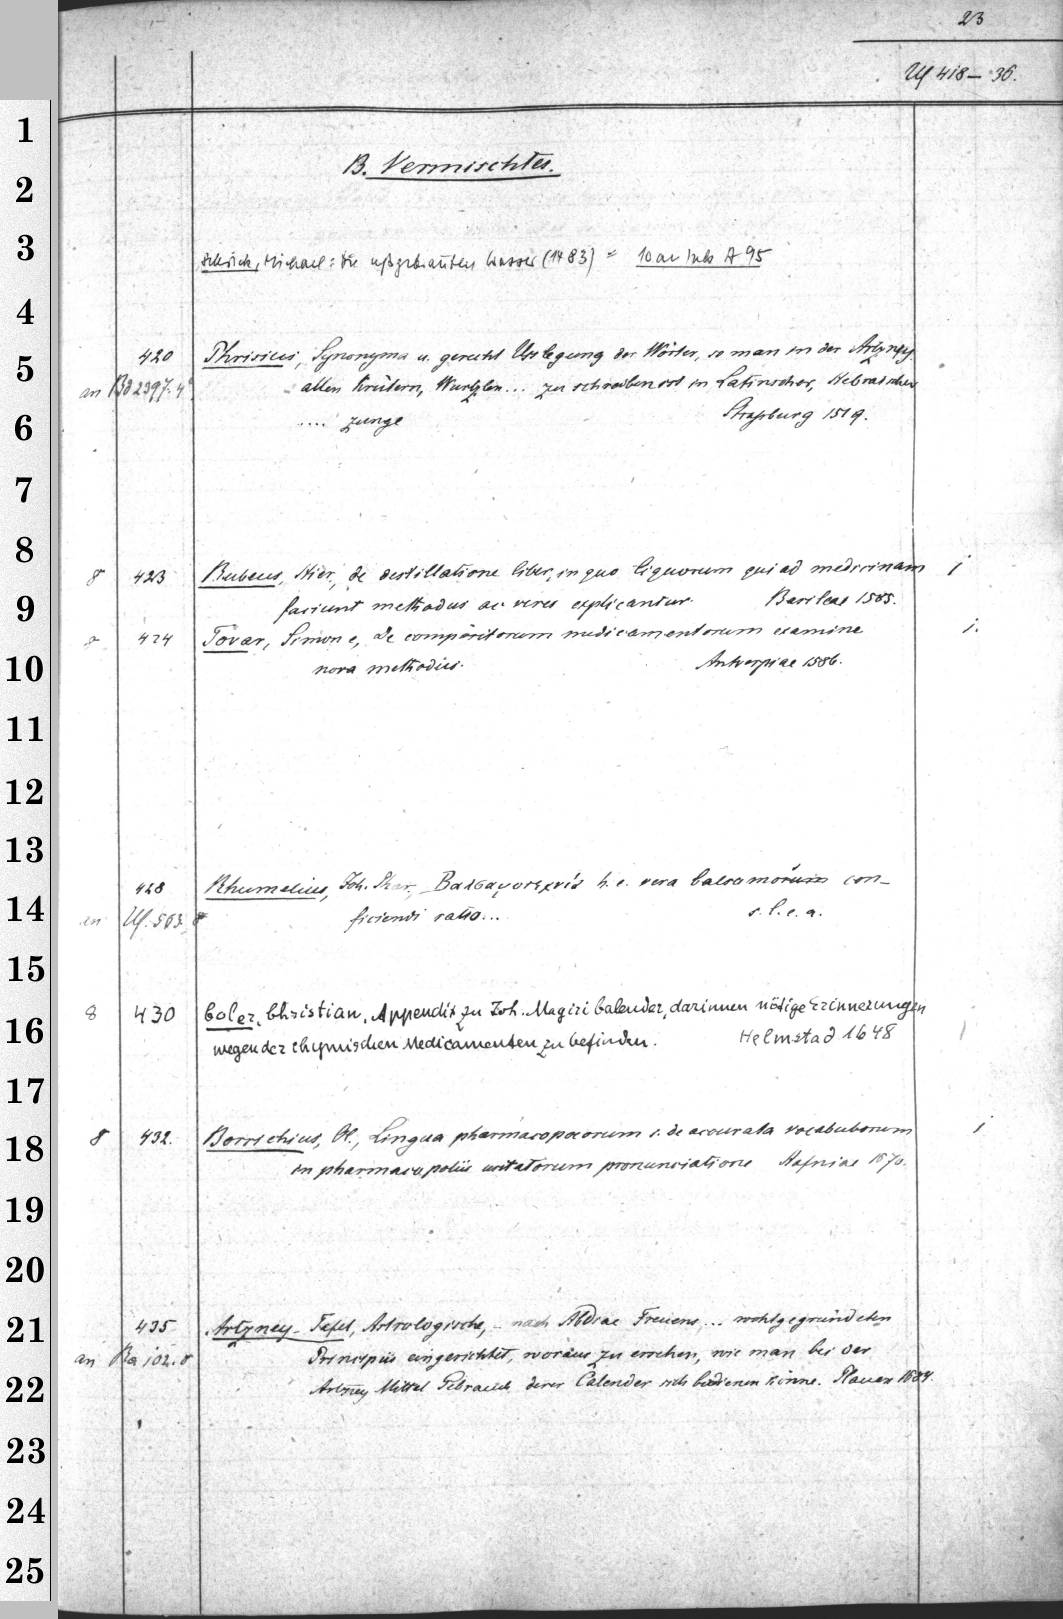 23
Uf 418 – 36.
B. Vermischtes.
Schrick, Michael: die ußgebranten Wasser (1483) = 10 an Ink A 95
420 Phrisius, Synonyma u. gerecht Uslegung der Wörter, so man in der Artzney
an Bd 2397. 4° allen Kreütern, Wurtzlen... zu schreiben ist in Latinscher, Hebraischer
.... zunge Strassburg 1519.
8 423 Rubeus, Hier., de destillatione liber, in quo liquorum qui ad medicinam i
faciunt methodus ac vires explicantur. Basileae 1585.
8 424 Tovar, Simone, de compositorum medicamentorum examine i.
nova methodus. Antverpiae 1586.
428 Rhumelius, Joh. Phar., h. e. vera balsamorum con-
an Uf. 563. 8 ficiendi ratio... s. l. e. a.
8 430 Coler, Christian, Appendix zu Joh. Magiri Calender, darinnen nötige Erinnerungen
wegen der chymischen Medicamenten zu befinden. Helmstad 1648
8 432. Borrichius, Ol., Lingua pharmacopoeorum s. de accurata vocabulorum i
in pharmacopoliis usitatorum pronunciatione Hafniae 1670.
435 Artzney-Tafel, Astrologische, – nach Abdiae Freuens, ... wohlgegründeten
an Ra 102. 8 Principiis eingerichtet, woraus zu ersehen, wie man bei der
Artzney Mittel Gebrauch derer Calender sich bedienen könne. Plauen 1684.
1
2
3
4
5
6
7
8
9
10
11
12
13
14
15
16
17
18
19
20
21
22
23
24
25